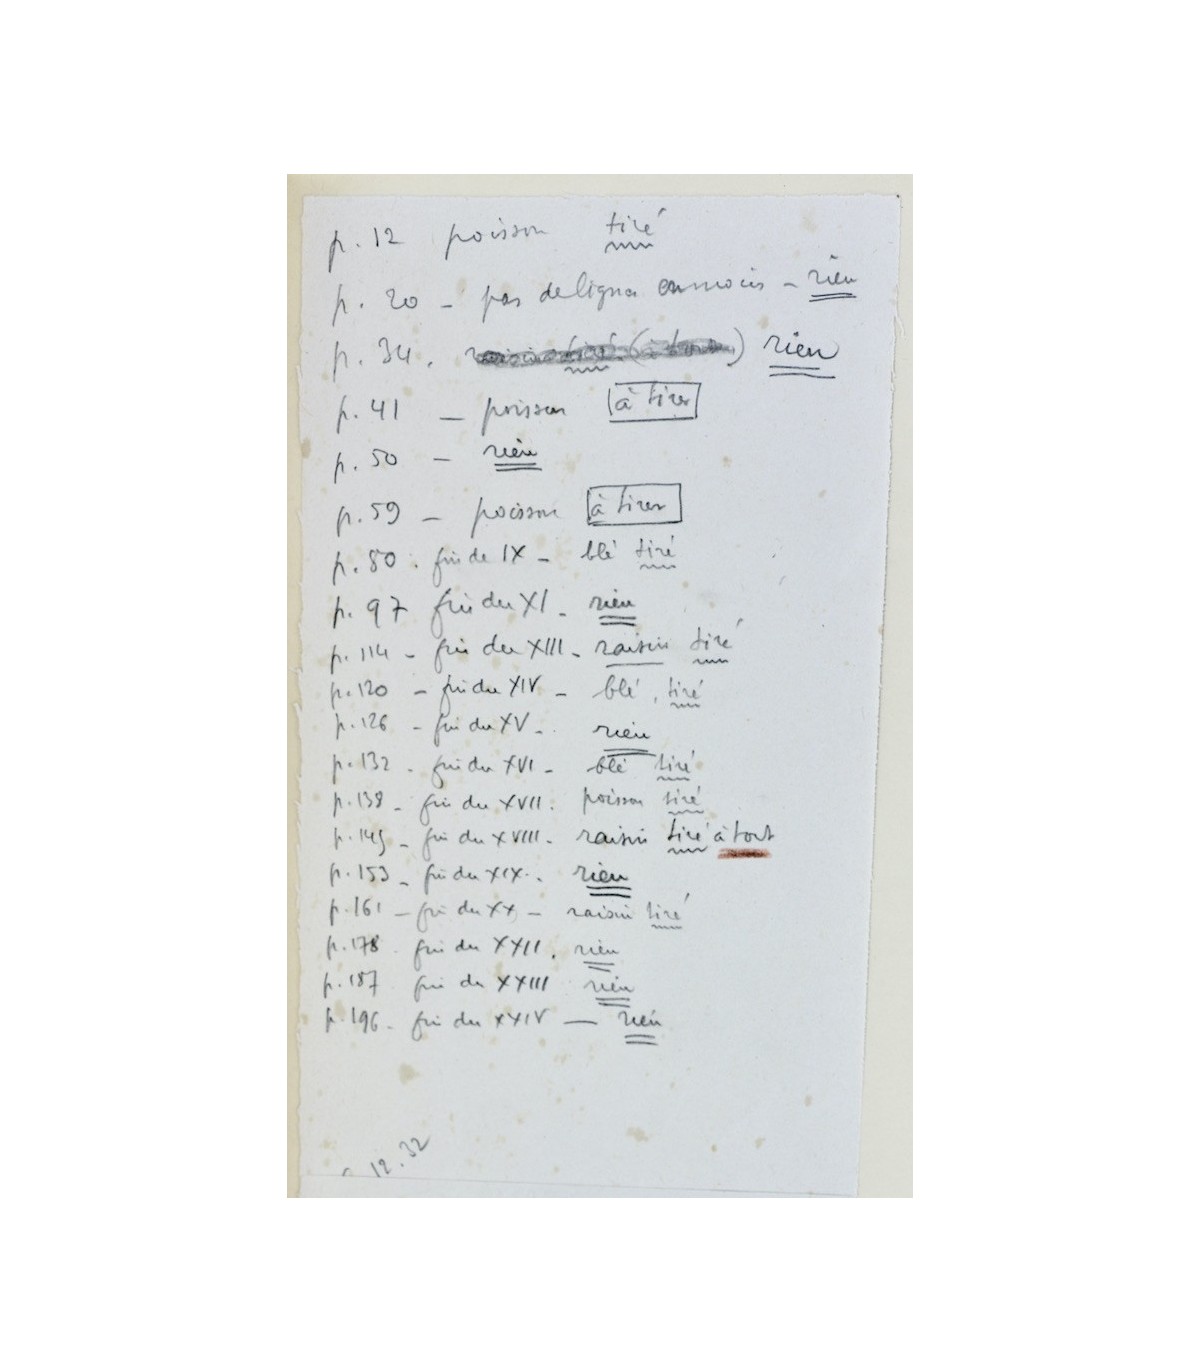 p. 12 poisson tiré
p. 20 – pas de lignes en moins – rien
p. 34. rien
p. 41 – poisson à tirer
p. 50 – rien
p. 59 – poisson à tirer
p. 80. fin de IX – blé tiré
p. 97 fin du XI – rien
p. 114 – fin du XIII – raisin tiré
p. 120 – fin du XIV – blé, tiré
p. 126 – fin du XV – rien
p. 132 – fin du XVI – blé tiré
p. 138 – fin du XVII. poisson tiré
p. 145 – fin du XVIII – raisin tiré à tout
p. 153 – fin du XIX. rien
p. 161 – fin du XX – raisin tiré
p. 178 fin du XXII. rien
p. 187 fin du XXIII rien
p. 196 – fin du XXIV — rien
12.32